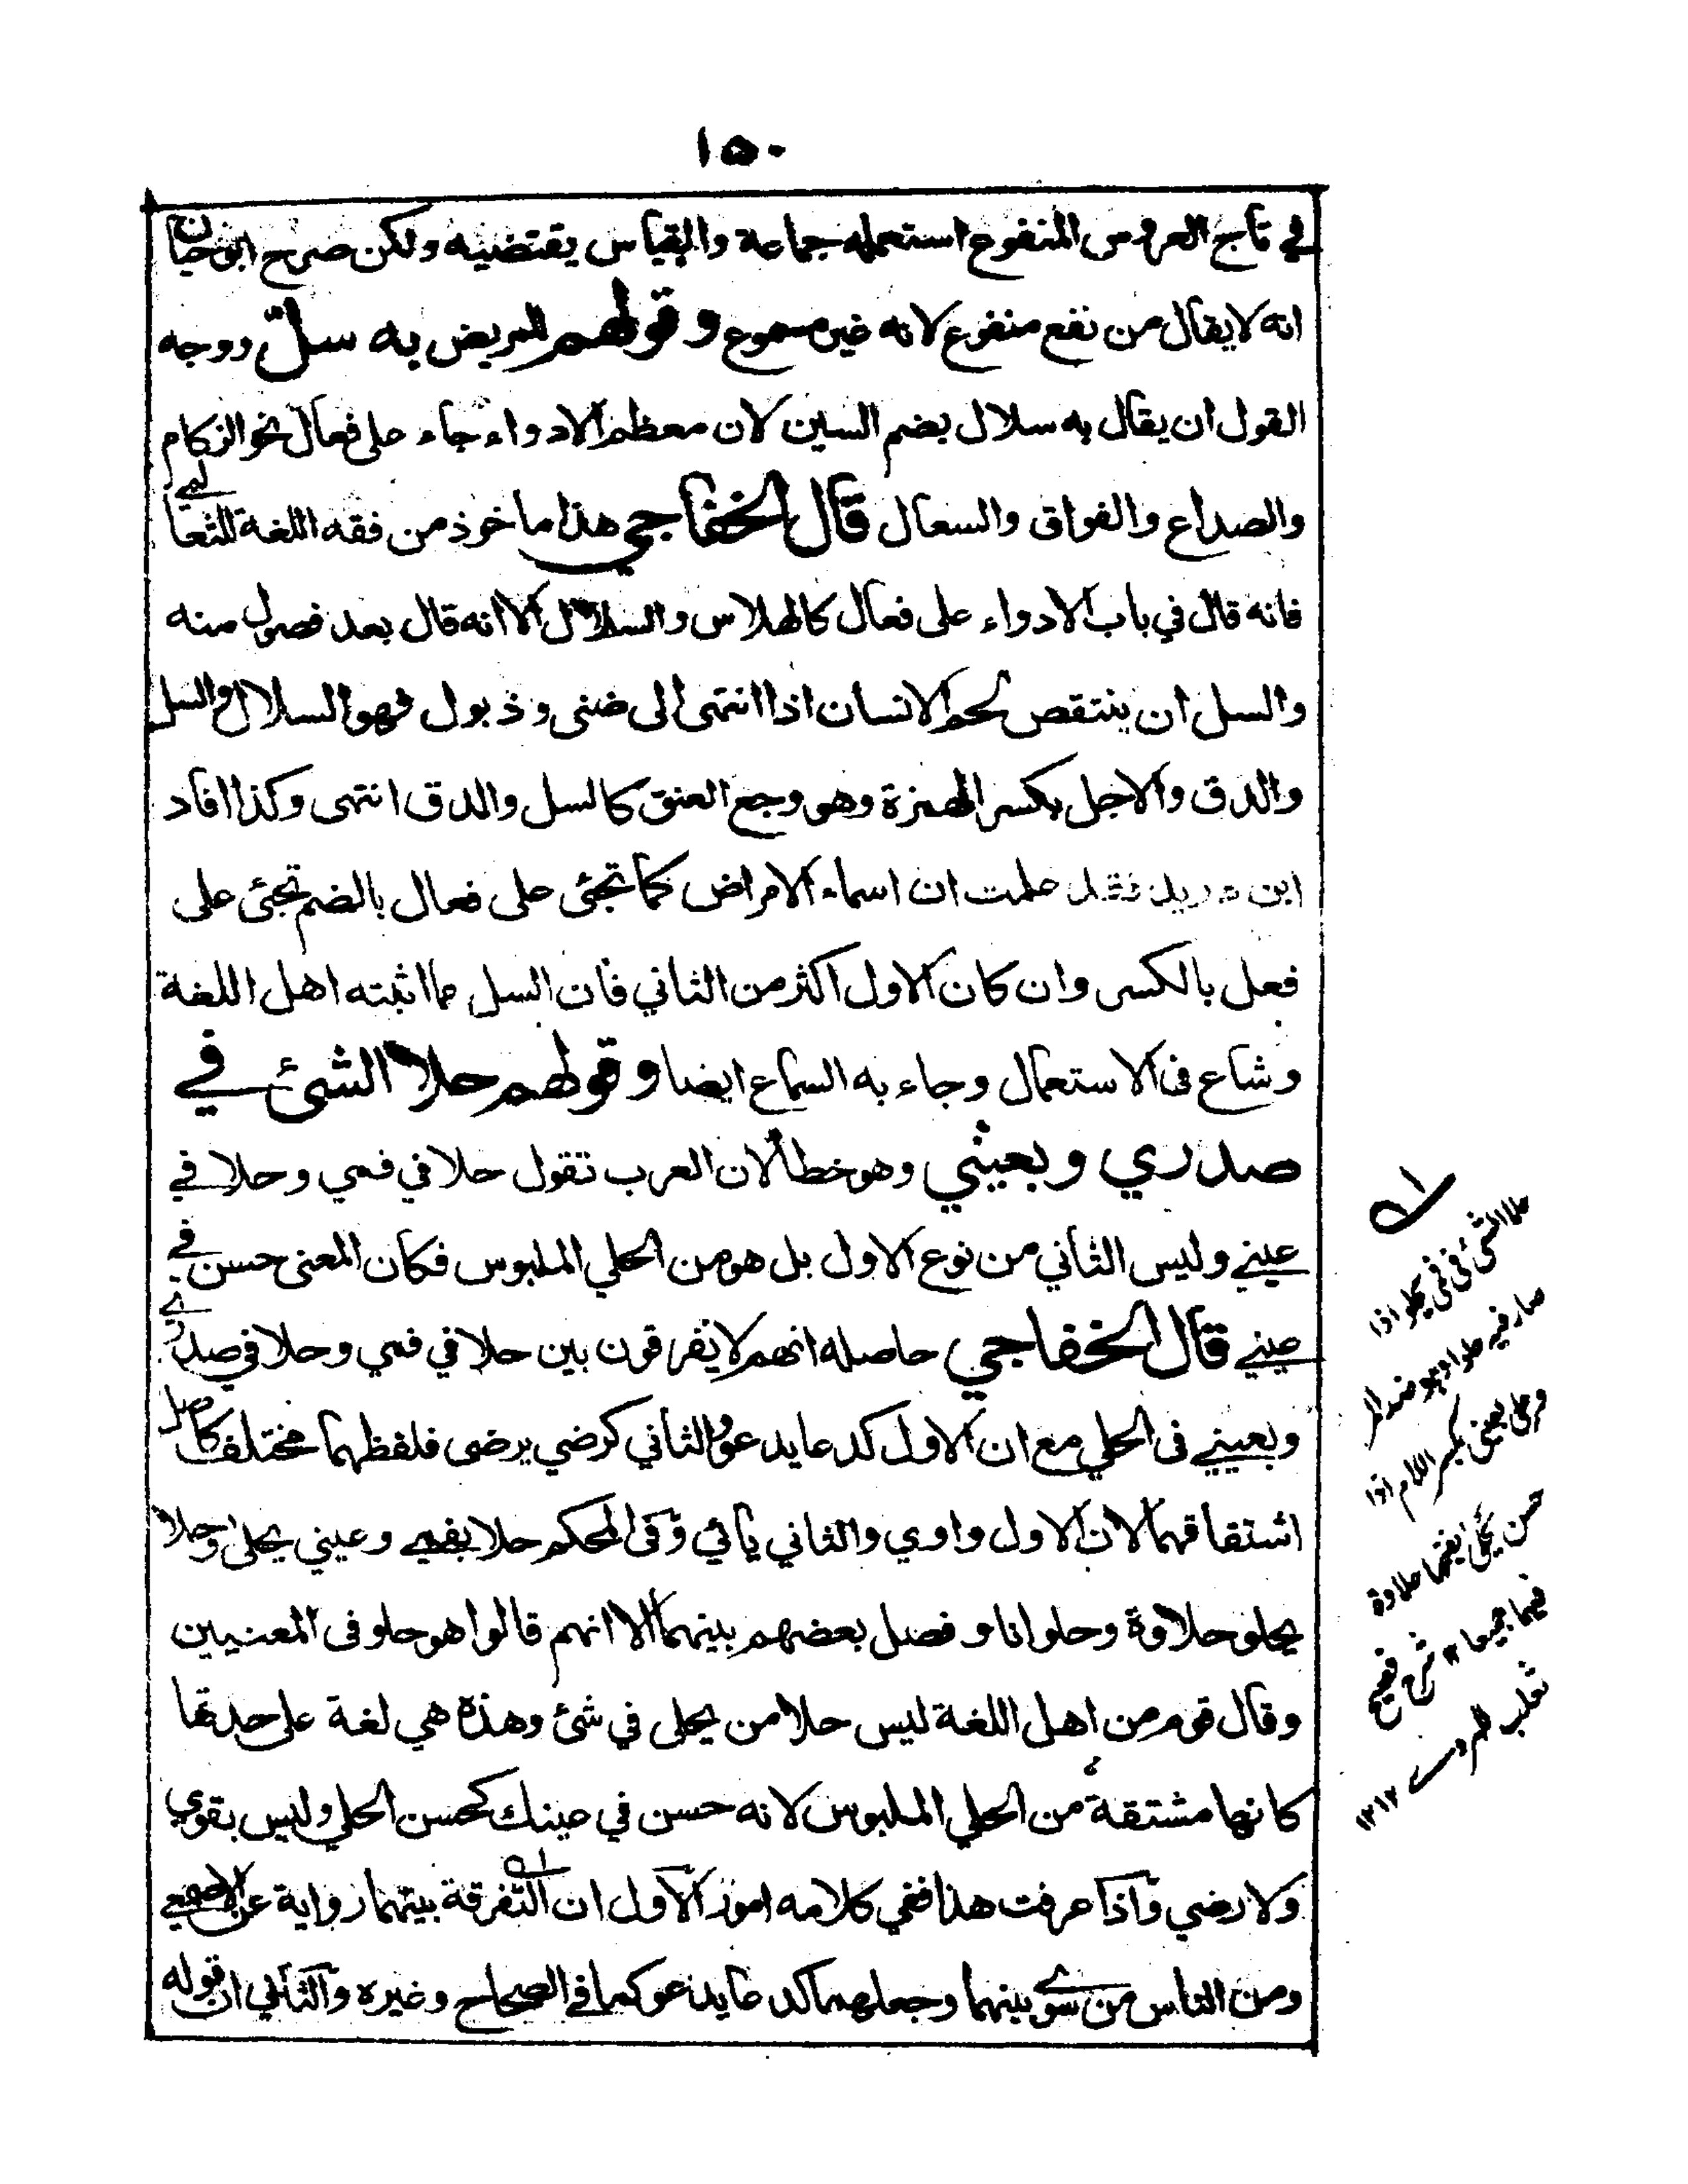 ١٥٠
في تاج العروس المنفوع استعمله جماعة والقياس يقتضيه ولكن صرح ابو حيان
انه لا يقال من نفع منفوع لانه غير مسموع وقولهم للمريض به سلّ ووجه
القول ان يقال به سلال بضم السين لان معظم الادواء جاء على فعال نحو الزكام
والصداع والفواق والسعال قال الخفاجي هذا ماخوذ من فقه اللغة للثعالبي
فانه قال في باب الادواء على فعال كالهلاس والسلال الا انه قال بعد فصول منه
والسل ان ينتقص لحم الانسان اذا انتهى الى ضنى وذبول فهو السلال والسل
والدق والاجل بكسر الهمزة وهو وجع العنق كالسل والدق انتهى وكذا افاد
ابن دريد فقد علمت ان اسماء الامراض كما تجئى على فعال بالضم تجئى على
فعل بالكسر وان كان الاول اكثر من الثاني فان السل مما اثبته اهل اللغة
وشاع فى الاستعمال وجاء به السماع ايضا وقولهم حلا الشئ في
صدري وبعيني وهو خطأ لان العرب تقول حلا في فمي وحلا في
عيني وليس الثاني من نوع الاول بل هو من الحلي الملبوس فكان المعنى حسن في
عيني قال الخفاجي حاصله انهم لا يفرقون بين حلا في فمي وحلا في صدري
وبعيني فى الحلي مع ان الاول كدعا يدعو والثاني كرضي يرضى فلفظهما مختلف كاصل
اشتقاقهما لان الاول واوي والثاني يائي وفى المحكم حلا بفمي وعيني يحلى وحلا
يحلو حلاوة وحلوانا وفصل بعضهم بينهما الا انهم قالوا هو حلو فى المعنيين
وقال قوم من اهل اللغة ليس حلا من يحلى في شئ وهذه هي لغة على حدتها
كانها مشتقة من الحلي الملبوس لانه حسن في عينك كحسن الحلي وليس بقوي
ولا رضي واذا عرفت هذا ففي كلامه امور الاول ان التفرقة بينهما رواية عن الاصمعي
ومن الناس من سوى بينهما وجعلهما كدعا يدعو كما في الصحاح وغيره والثاني ان قوله
حلا الشئ فى فى يحلو اذا
صار فيه حلوا وهو ضد المر
وحلى بعينى بكسر اللام اذا
حسن يحلى ايضا حلاوة
فيهما جميعا ١٢ شرح فصيح
ثعلب للهروى ١٢١٢